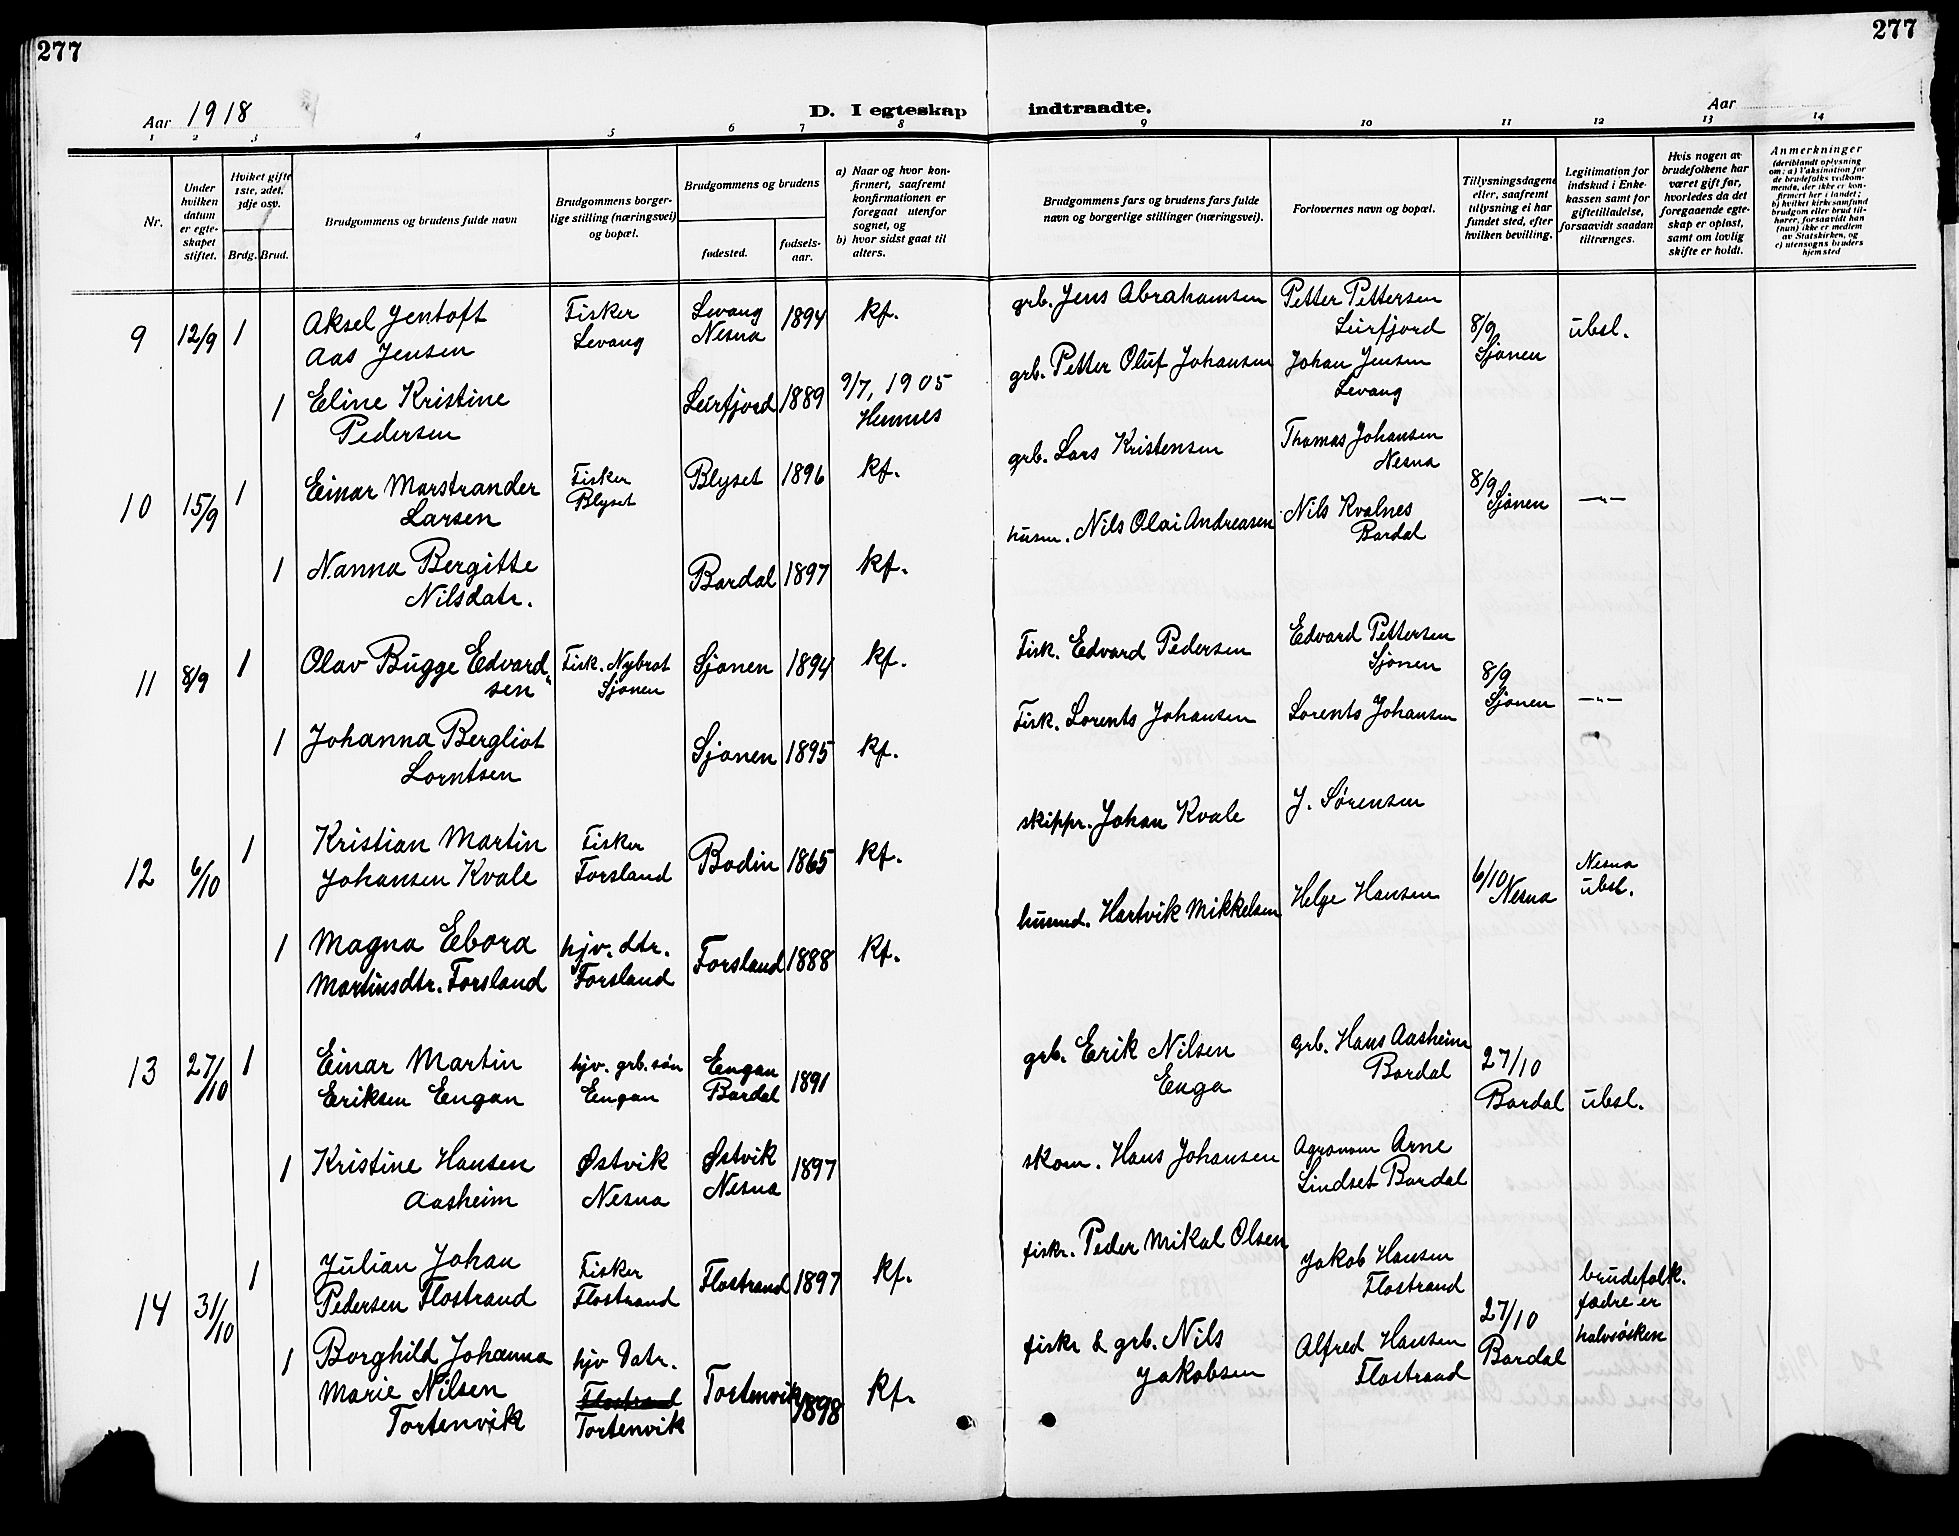 277
277
Aar 1918
D. I egteskap indtraadte.
Aar
1 2 3 4 5 6 7 8 9 10 11 12 13 14
Nr.
Under
hvilken
datum
er egte-
skapet
stiftet.
Hvilket gifte
1ste, 2det,
3dje osv.
Brdg. Brud.
Brudgommens og brudens fulde navn
Brudgommens borger-
lige stilling (næringsvei)
og bopæl.
Brudgommens og brudens
fødested.
fødsels-
aar.
a) Naar og hvor kon-
firmert, saafremt
konfirmationen er
foregaat utenfor
sognet, og
b) hvor sidst gaat til
alters.
Brudgommens fars og brudens fars fulde
navn og borgerlige stillinger (næringsvei).
Forlovernes navn og bopæl.
Tillysningsdagene
eller, saafremt
tillysning ei har
fundet sted, efter
hvilken bevilling.
Legitimation for
indskud i Enke-
kassen samt for
giftetilladelse,
forsaavidt saadan
tiltrænges.
Hvis nogen av
brudefolkene har
været gift før,
hvorledes da det
foregaaende egte-
skap er opløst,
samt om lovlig
skifte er holdt.
Anmerkninger
(deriblandt oplysning
om: a) Vaksination for
de brudefolks vedkom-
mende, der ikke er kon-
firmert her i landet;
b) hvilket kirkesamfund
brudgom eller brud til-
hører, forsaavidt han
(hun) ikke er medlem
av Statskirken, og
c) utensogns bruders
hjemsted
9 12/9 1
Aksel Jentoft
Aas Jensen
Fisker
Levang
Levang
Nesna
1894
kf.
grb. Jens Abrahamsen
Petter Pettersen
Leirfjord
8/9
Sjonen
ubsl.
1
Eline Kristine
Pedersen
Leirfjord
1889
9/7, 1905
Hemnes
grb. Petter Oluf Johansen
Johan Jensen
Levang
10 15/9 1
Einar Marstrander
Larsen
Fisker
Blyset
Blyset
1896
kf.
grb. Lars Kristensen
Thomas Johansen
Nesna
8/9
Sjonen
—"—
1
Nanna Bergitte
Nilsdatr.
Bardal
1897
kf.
husm. Nils Olai Andreasen
Nils Kvalnes
Bardal
11 8/9 1
Olav Bugge Edvard„
sen
Fisk. Nybrot
Sjonen
Sjonen
1894
kf.
Fisk. Edvard Pedersen
Edvard Pettersen
Sjonen
8/9
Sjonen
—"—
1
Johanna Bergliot
Lorntsen
Sjonen
1895
kf.
Fisk. Lorents Johansen
Lorents Johansen
12 6/10 1
Kristian Martin
Johansen Kvale
Fisker
Forsland
Bodin
1865
kf.
skippr. Johan Kvale
J. Sørensen
6/10
Nesna
Nesna
ubsl.
1
Magna Ebora
Martinsdtr. Forsland
hjv. dtr.
Forsland
Forsland
1888
kf.
husmd. Hartvik Mikkelsen
Helge Hansen
13 27/10 1
Einar Martin
Eriksen Engan
hjv. grb. søn
Engan
Engan
Bardal
1891
grb. Erik Nilsen
Enga
grb. Hans Aasheim
Bardal
27/10
Bardal
ubsl.
1
Kristine Hansen
Aasheim
Østvik
Nesna
Østvik
Nesna
1897
skom. Hans Johansen
Agronom Arne
Lindset Bardal
14 31/10 1
Julian Johan
Pedersen Flostrand
Fisker
Flostrand
Flostrand
1897
kf.
fiskr. Peder Mikal Olsen
Jakob Hansen
Flostrand
27/10
Bardal
brudefolk.
fædre er
halvsøsken
1
Borghild Johanna
Marie Nilsen
Tortenvik
hjv Datr.
Flostrand
Tortenvik
Tortenvik
1898
kf.
fiskr & grb. Nils
Jakobsen
Alfred Hansen
Flostrand